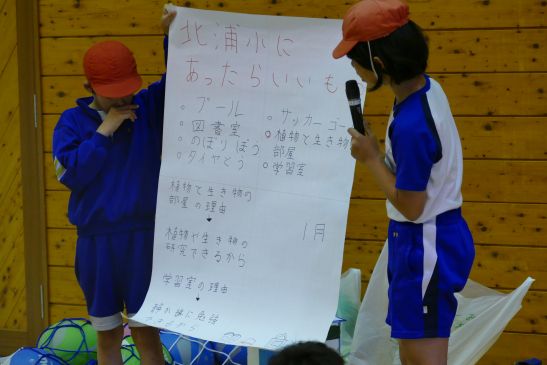 北浦小に
あったらいいも
○ プール
○ 図書室
○ のぼりぼう
○ タイヤとう
○ サッカーゴー
○ 植物と生き物
部屋
○ 学習室
植物と生き物の
部屋の理由
植物や生き物の
研究できるから
1月
学習室の理由